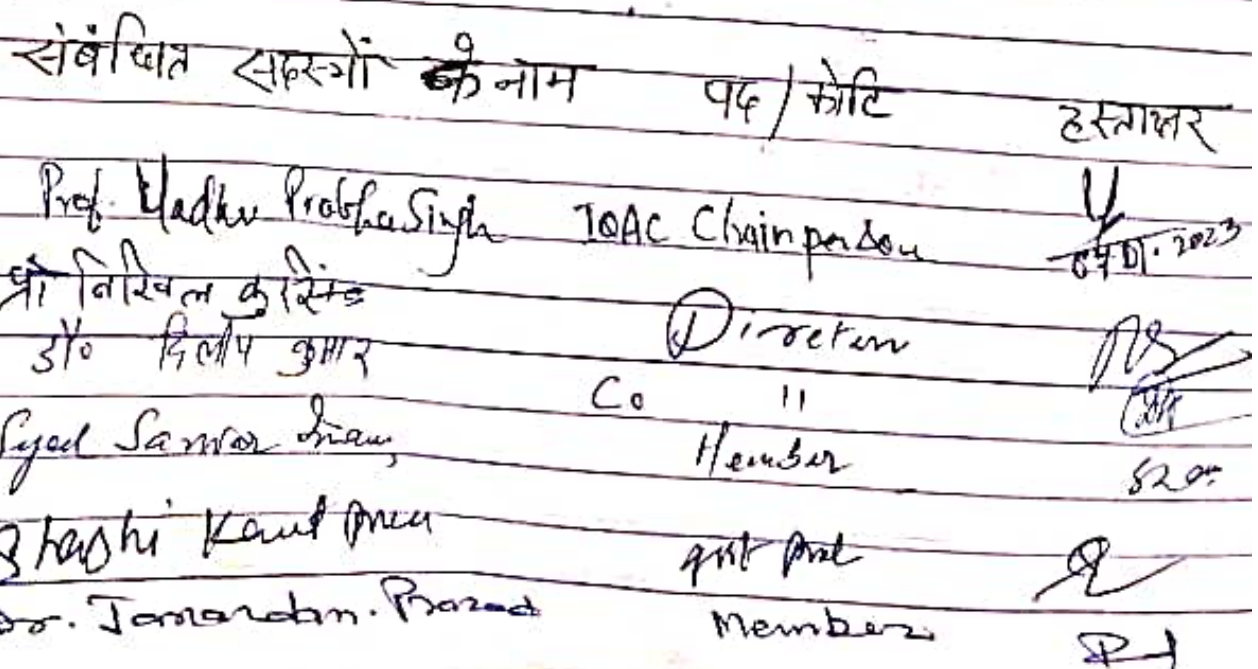 संबंधित सदस्यों के नाम पद / कोटि हस्ताक्षर
Prof. Madhu Prabha Singh IQAC Chairperson
.01.2023
प्रो निखिल कु सिंह Director
डॉ० दिलीप कुमार Co "
Syed Member
Shashi Kant
Dr. Janardan. Prasad Member